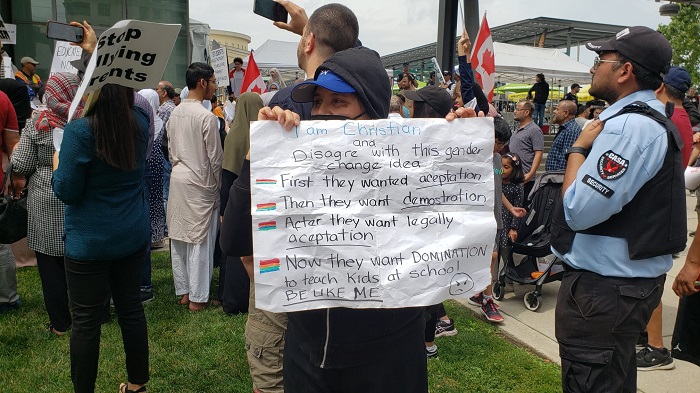 EDUCATE
Stop
Bullying
Parents
I am Christian
and
Disagree with this gender
change idea
First they wanted aceptation
Then they want demostration
Acter they want legally
aceptation
Now they want DOMINATION
to teach kids at school!
BE LIKE ME
CASA
SECURITY